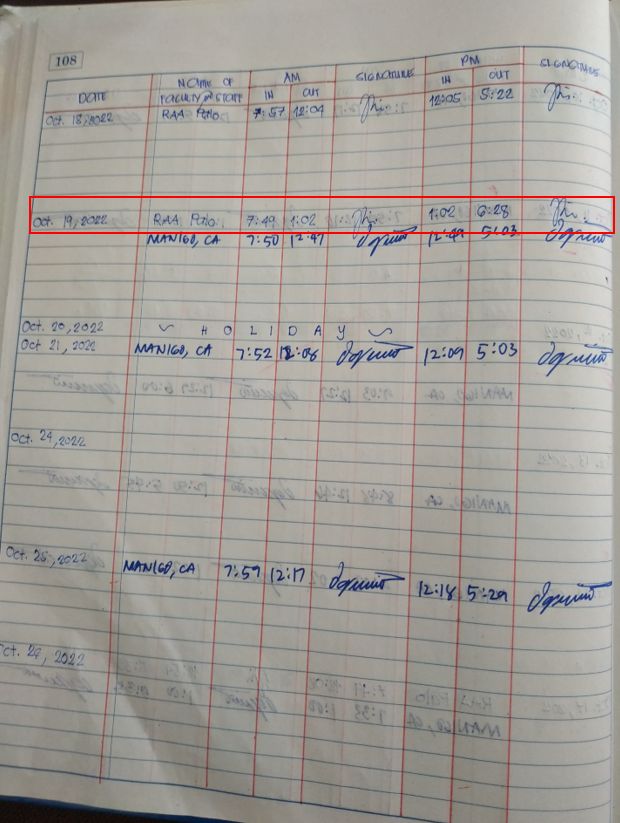 108
DATE NAME OF FACULTY/STAFF AM IN OUT SIGNATURE PM IN OUT SIGNATURE
Oct. 18, 2022 RAA 7:57 12:04 12:05 5:22
Oct. 19, 2022 RAA 7:49 1:02 1:02 6:28
MANIGO, CA 7:50 12:47 12:49 5:03
Oct. 20, 2022 ~ H O L I D A Y ~
Oct 21, 2022 MANIGO, CA 7:52 12:08 12:09 5:03
Oct. 24, 2022
Oct. 25, 2022 MANIGO, CA 7:59 12:17 12:18 5:29
2022